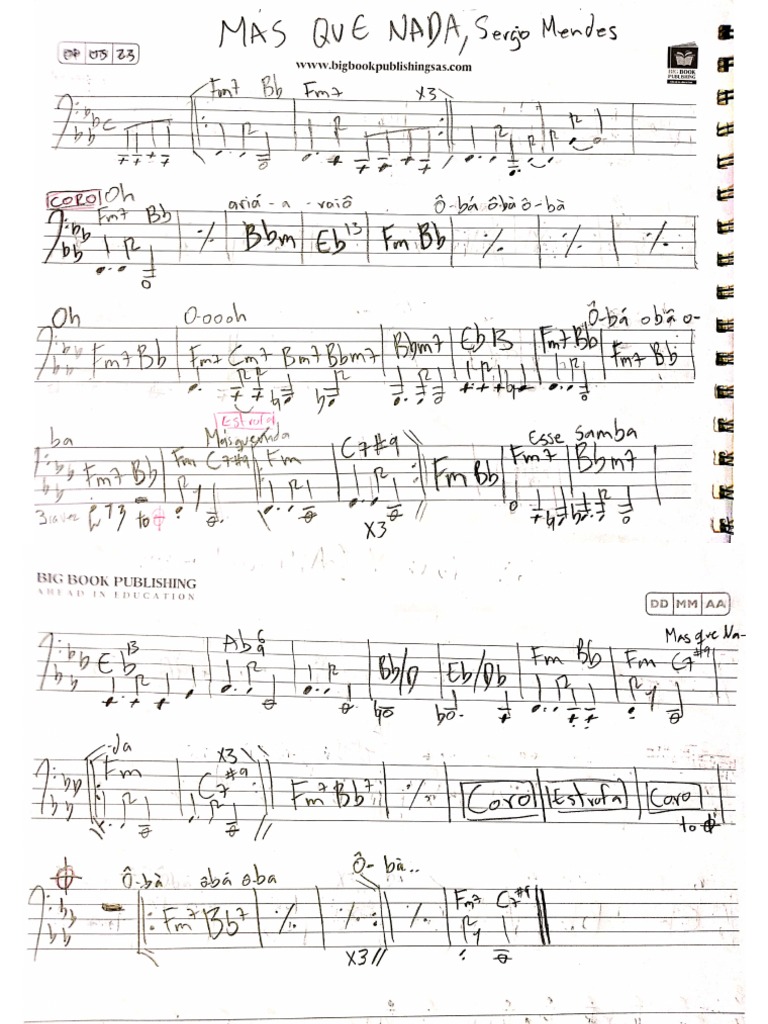 MÁS QUE NADA, Sergio Mendes
05 23
www.bigbookpublishingsas.com
BIG BOOK PUBLISHING
Fm7 Bb Fm7 X3
C
CORO Oh ariá-a -raiô Ô-bá ôbà ô-bà
Fm7 Bb Bbm Eb13 Fm Bb
Oh O-oooh Ô-bá obâ o-
Fm7 Bb Fm7 Cm7 Bm7 Bbm7 Bbm7 Eb13 Fm7 Bb Fm7 Bb
Estrofa
ba Másquenada Esse Samba
Fm7 Bb Fm C7#9 Fm C7#9 Fm Bb Fm7 Bbm7
to
X3
BIG BOOK PUBLISHING
AHEAD IN EDUCATION
DD MM AA
Mas que Na-
Eb13 Ab6/9 Bb/D Eb/Db Fm Bb Fm C7#9
-da X3
Fm C7#9 Fm7 Bb7 Coro Estrofa Coro
to
Ô-bà ôbá ôba Ô-bà..
Fm7 Bb7 Fm7 C7#9
X3